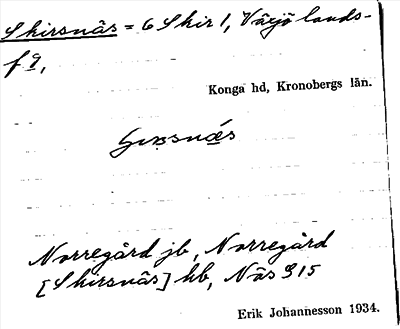 Skirsnäs = 6 Skir 1, Växjö lands-
f 9,
Konga hd, Kronobergs län.
Norregård jb, Norregård
[Skirsnäs] hb, Näs 915
Erik Johannesson 1934.